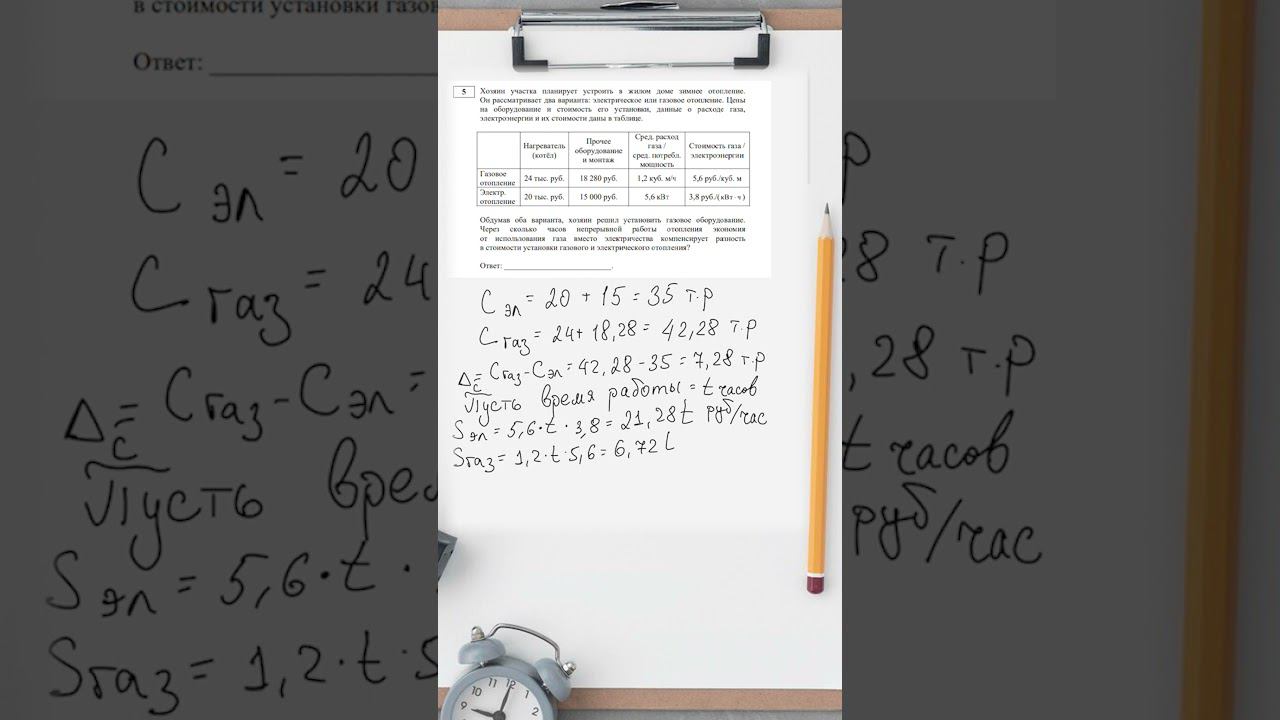 5
Хозяин участка планирует устроить в жилом доме зимнее отопление.
Он рассматривает два варианта: электрическое или газовое отопление. Цены
на оборудование и стоимость его установки, данные о расходе газа,
электроэнергии и их стоимости даны в таблице.
Нагреватель (котёл) Прочее оборудование и монтаж Сред. расход газа / сред. потребл. мощность Стоимость газа / электроэнергии
Газовое отопление 24 тыс. руб. 18 280 руб. 1,2 куб. м/ч 5,6 руб./куб. м
Электр. отопление 20 тыс. руб. 15 000 руб. 5,6 кВт 3,8 руб./( кВт · ч )
Обдумав оба варианта, хозяин решил установить газовое оборудование.
Через сколько часов непрерывной работы отопления экономия
от использования газа вместо электричества компенсирует разность
в стоимости установки газового и электрического отопления?
Ответ: ___________________________.
Cэл = 20 + 15 = 35 т.р
Cгаз = 24+ 18,28 = 42,28 т.р
Δc = Cгаз - Cэл = 42,28 - 35 = 7,28 т.р
Пусть время работы = t часов
Sэл = 5,6 · t · 3,8 = 21,28t руб/час
Sгаз = 1,2 · t · 5,6 = 6,72
в стоимости установки газов
Ответ:
Cэл = 20
Cгаз = 24
28 т.р
Δc = Cгаз - Cэл =
,28 т.р
Пусть врем
t часов
Sэл = 5,6 · t ·
руб/час
Sгаз = 1,2 · t · 5
10 11 12 1 9